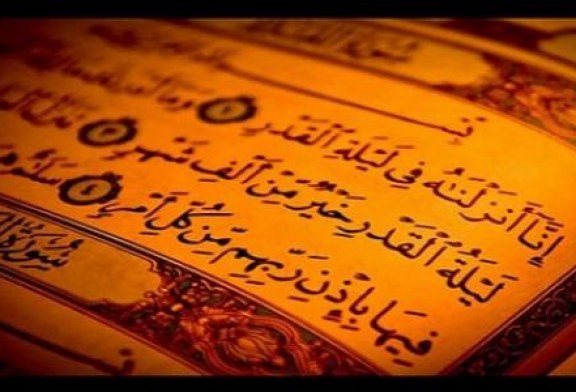 إِنَّآ أَنزَلْنَٰهُ فِى لَيْلَةِ ٱلْقَدْرِ ١ وَمَآ
لَيْلَةُ ٱلْقَدْرِ خَيْرٌ مِّنْ أَلْفِ شَهْرٍ ٣ تَنَزَّلُ
فِيهَا بِإِذْنِ رَبِّهِم مِّن كُلِّ أَمْرٍ ٤ سَلَٰمٌ
سُورَةُ